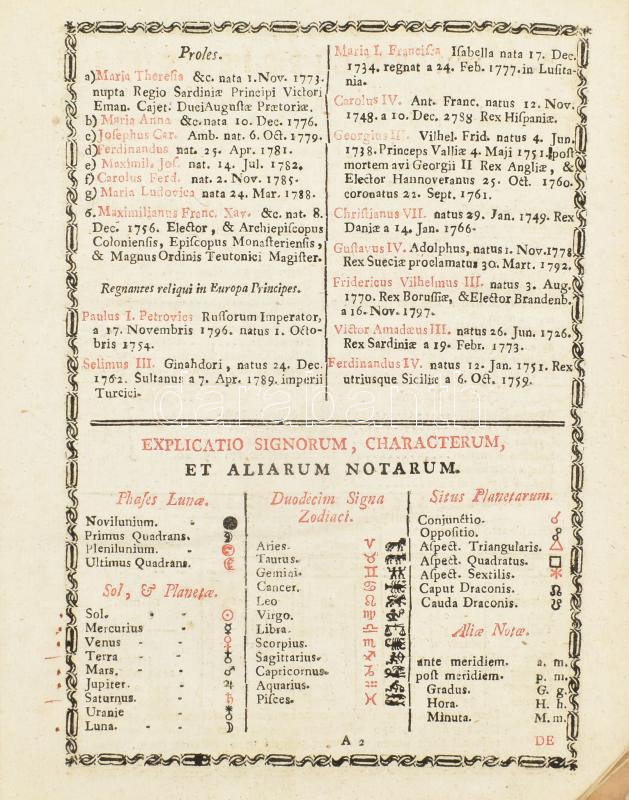 Proles.
a) Maria Theresia &c. nata 1. Nov. 1773.
nupta Regio Sardiniæ Principi Victori
Eman. Cajet. Duci Augustæ Prætoriæ.
b) Maria Anna &c. nata 10. Dec. 1776.
c) Josephus Car. Amb. nat. 6. Oct. 1779.
d) Ferdinandus nat. 25. Apr. 1781.
e) Maximil. Jos. nat. 14. Jul. 1782.
f) Carolus Ferd. nat. 2. Nov. 1785.
g) Maria Ludovica nata 24. Mar. 1788.
6. Maximilianus Franc. Xav. &c. nat. 8.
Dec. 1756. Elector, & Archiepiscopus
Coloniensis, Episcopus Monasteriensis,
& Magnus Ordinis Teutonici Magister.
Regnantes reliqui in Europa Principes.
Paulus I. Petrovics Russorum Imperator,
a 17. Novembris 1796. natus 1. Octo-
bris 1754.
Selimus III. Ginahdori, natus 24. Dec.
1762. Sultanus a 7. Apr. 1789. imperii
Turcici.
Maria I. Francisca Isabella nata 17. Dec.
1734. regnat a 24. Feb. 1777. in Lusita-
nia.
Carolus IV. Ant. Franc. natus 12. Nov.
1748. a 10. Dec. 2788 Rex Hispaniæ.
Georgius III. Vilhel. Frid. natus 4. Jun.
1738. Princeps Valliæ 4. Maji 1751. post
mortem avi Georgii II Rex Angliæ, &
Elector Hannoveranus 25. Oct. 1760.
coronatus 22. Sept. 1761.
Christianus VII. natus 29. Jan. 1749. Rex
Daniæ a 14. Jan. 1766.
Gustavus IV. Adolphus, natus 1. Nov. 1778
Rex Sueciæ proclamatus 30. Mart. 1792.
Fridericus Vilhelmus III. natus 3. Aug.
1770. Rex Borussiæ, & Elector Brandenb.
a 16. Nov. 1797.
Victor Amadæus III. natus 26. Jun. 1726.
Rex Sardiniæ a 19. Febr. 1773.
Ferdinandus IV. natus 12. Jan. 1751. Rex
utriusque Siciliæ a 6. Oct. 1759.
darabanth
EXPLICATIO SIGNORUM, CHARACTERUM,
ET ALIARUM NOTARUM.
Phases Lunæ.
Novilunium.
Primus Quadrans. ☽
Plenilunium.
Ultimus Quadrans. ☾
Sol, & Planetæ.
Sol. - - ☉
Mercurius - ☿
Venus - - ♀
Terra - - ♁
Mars. - - ♂
Jupiter. - - ♃
Saturnus. - ♄
Uranie -
Luna. - - ☽
Duodecim Signa
Zodiaci.
Aries. ♈
Taurus. ♉
Gemini. ♊
Cancer. ♋
Leo ♌
Virgo. ♍
Libra. ♎
Scorpius. ♏
Sagittarius. ♐
Capricornus. ♑
Aquarius. ♒
Pisces. ♓
Situs Planetarum.
Conjunctio. ☌
Oppositio. ☍
Aspect. Triangularis. △
Aspect. Quadratus. □
Aspect. Sextilis. ⚹
Caput Draconis. ☊
Cauda Draconis. ☋
Aliæ Notæ.
ante meridiem. a. m.
post meridiem. p. m.
Gradus. G. g.
Hora. H. h.
Minuta. M. m.
A 2
DE